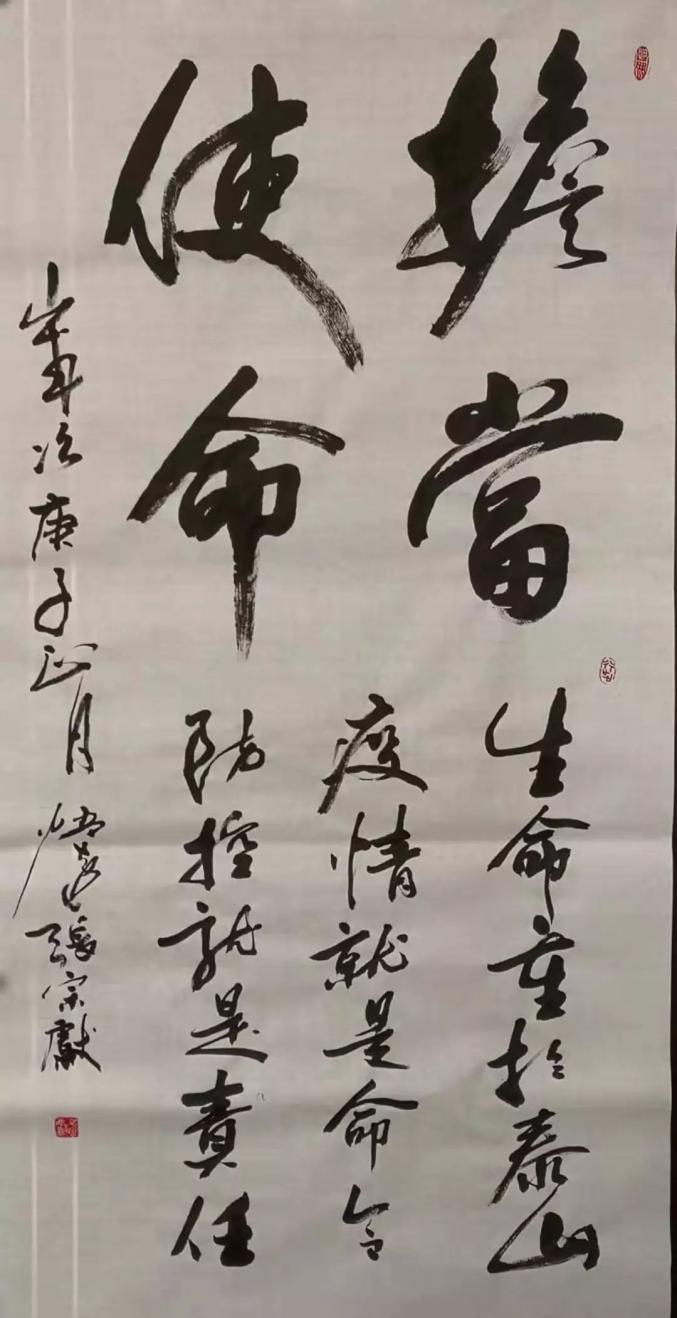 擔當
使命
生命重於泰山
疫情就是命令
防控就是責任
歲次庚子正月 張宗獻